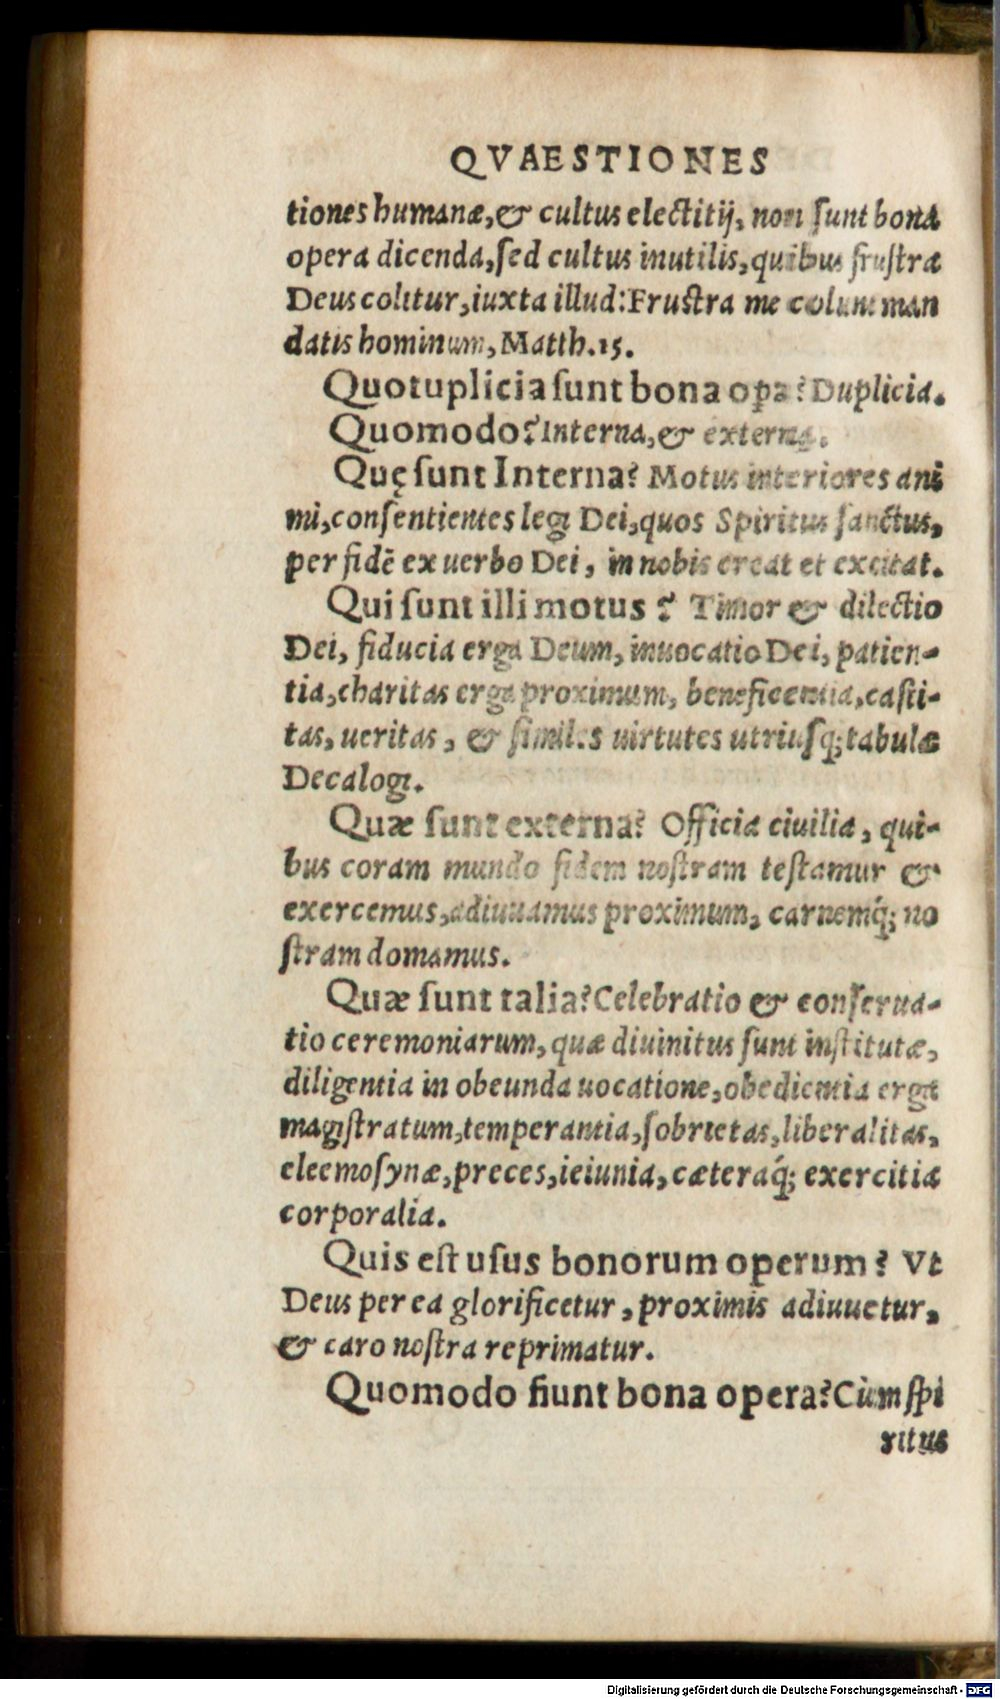 QVAESTIONES
tiones humanæ, & cultus electitij, non ſunt bona
opera dicenda, ſed cultus inutilis, quibus fruſtra
Deus colitur, iuxta illud: Fruſtra me colunt man
datis hominum, Matth. 15.
Quotuplicia ſunt bona opa? Duplicia.
Quomodo? Interna, & externa.
Quę ſunt Interna? Motus interiores ani
mi, conſentientes legi Dei, quos Spiritus ſanctus,
per fidē ex uerbo Dei, in nobis creat et excitat.
Qui ſunt illi motus? Timor & dilectio
Dei, fiducia erga Deum, inuocatio Dei, patien-
tia, charitas erga proximum, beneficentia, caſti-
tas, ueritas, & ſimiles uirtutes utriuſq; tabulæ
Decalogi.
Quæ ſunt externa? Officia ciuilia, qui-
bus coram mundo fidem noſtram teſtamur &
exercemus, adiuuamus proximum, carnemq́; no
ſtram domamus.
Quæ ſunt talia? Celebratio & conſerua-
tio ceremoniarum, quæ diuinitus ſunt inſtitutæ,
diligentia in obeunda uocatione, obedientia erga
magiſtratum, temperantia, ſobrietas, liberalitas,
eleemoſynæ, preces, ieiunia, cæteraq́; exercitia
corporalia.
Quis eſt uſus bonorum operum? Vt
Deus per ea glorificetur, proximis adiuuetur,
& caro noſtra reprimatur.
Quomodo fiunt bona opera? Cùm ſpi
ritus
Digitalisierung gefördert durch die Deutsche Forschungsgemeinschaft - DFG